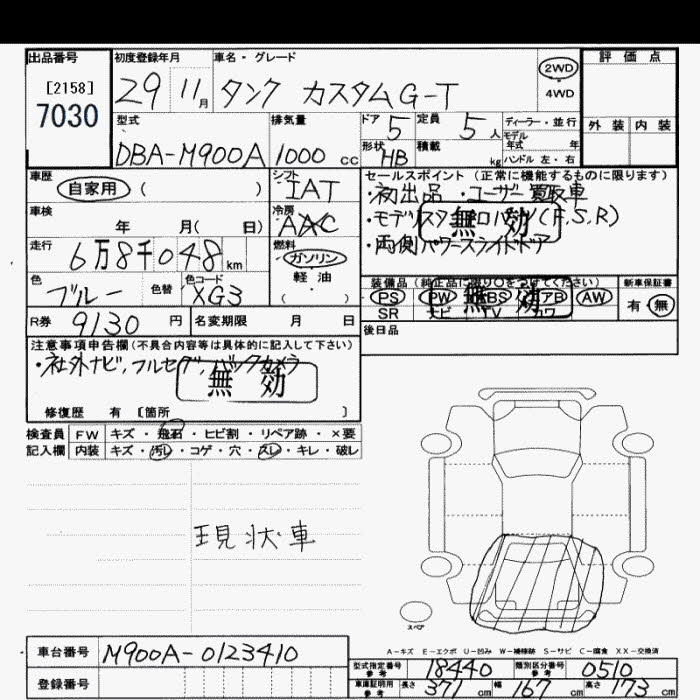 出品番号 初度登録年月 車名・グレード 評価点
[2158]
7030
29 11月 タンク カスタムG-T
2WD
4WD
外装 内装
型式 排気量 ドア 5 定員 5人 ディーラー・並行
モデル年式 年
DBA-M900A 1000cc 形状 HB 積載 kg ハンドル 左・右
車歴 シフト セールスポイント (正常に機能するものに限ります)
自家用 ( ) IAT ・初出品 ・ユーザー買取車
車検 冷房
年 月( 日) AAC
無効
走行 燃料
6万8千048km ガソリン ・両側パワースライドドア
軽油
( )
色 色替 色コード 装備品
ブルー XG3
PS PW AW
SR TV
無効
新車保証書
有・無
R券 9130円 名変期限 月 日 後日品
注意事項申告欄(不具合内容等は具体的に記入して下さい)
・社外ナビ,フルセグ,バックカメラ
無効
修復歴 有 [箇所 ]
検査員 FW キズ・飛石・ヒビ割・リペア跡・×要
記入欄 内装 キズ・汚レ・コゲ・穴・スレ・キレ・破レ
現状車
スペア
A-キズ E-エクボ U-凹み W-補修跡 S-サビ C-腐食 XX-交換済
車台番号 M900A-0123410
登録番号
型式指定番号 参考 18440 類別区分番号 参考 0510
車庫証明用 参考 長さ 371cm 幅 167cm 高さ 173cm